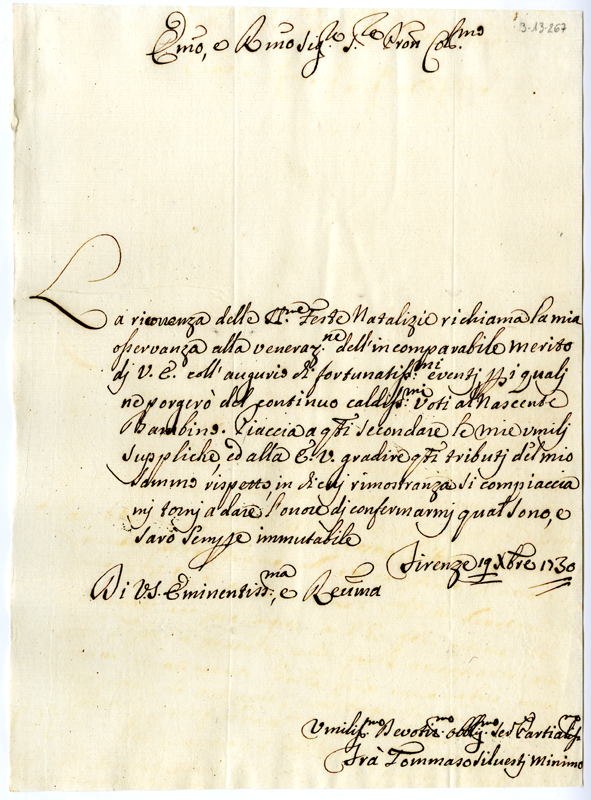 3-13-267
Emo, e Rmo Sig.re S.re Pron Col.mo
La ricorrenza delle SS.me Feste Natalizie richiama la mia
osservanza alla veneraz.ne dell'incomparabile merito
dj V. E. coll'augurio di fortunatiss.mi eventj ppi qualj
ne porgerò del continuo caldiss.mi Voti al Nascente
Bambino. Piaccia a qsti secondare le mie vmilj
suppliche ed alla E. V. gradire qsti tributj del mio
sommo rispetto, in di cuj rimostranza si compiaccia
mj tornj a dare l'onore dj confermarmj qual sono, e
sarò sempre immutabile
Firenze 19 Xbre 1730
Di VS. Eminentiss.ma, e Recuma
Vmiliss.mo Devotis.mo Obblig.mo Ser
Frà Tommaso Siluestrj Minimo